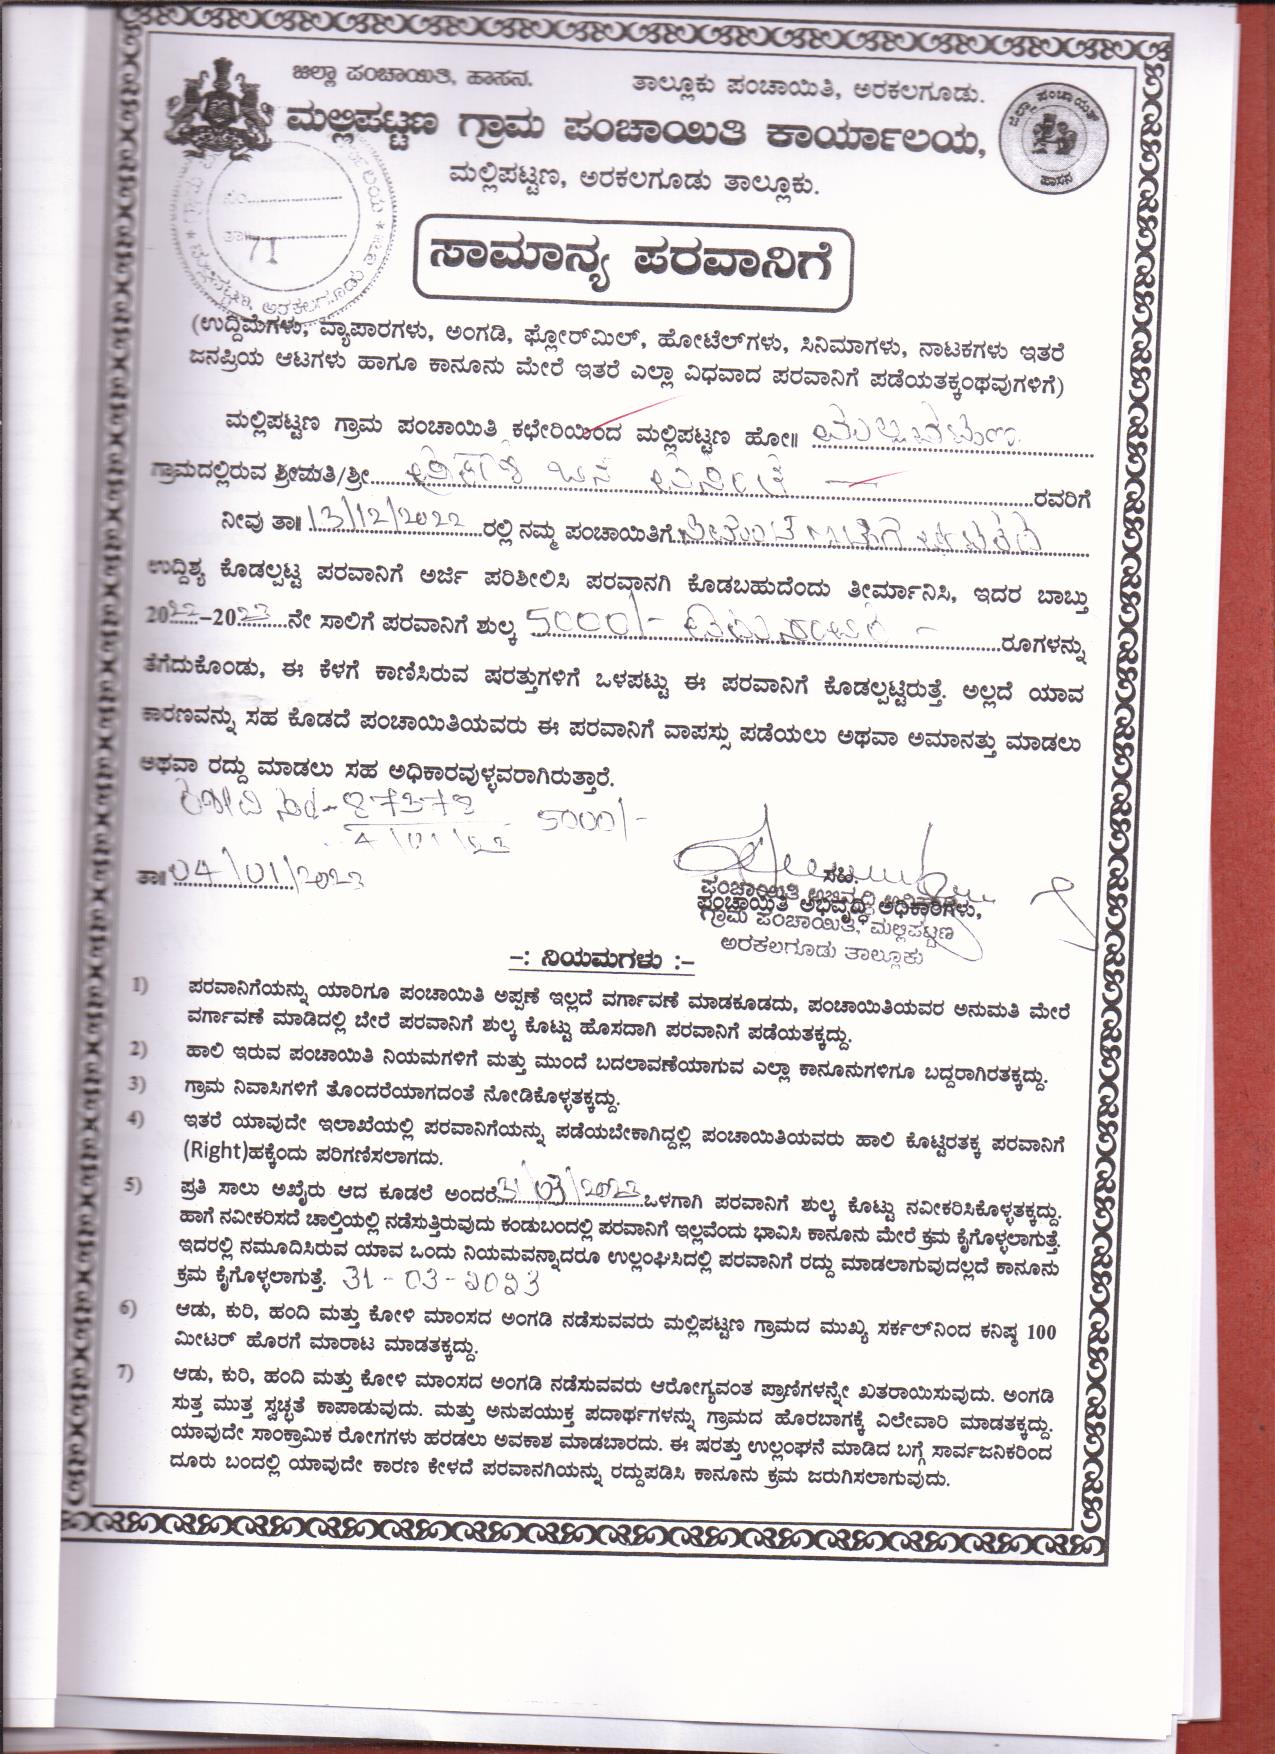 ಜಿಲ್ಲಾ ಪಂಚಾಯಿತಿ, ಹಾಸನ. ತಾಲ್ಲೂಕು ಪಂಚಾಯಿತಿ, ಅರಕಲಗೂಡು.
ಮಲ್ಲಿಪಟ್ಟಣ ಗ್ರಾಮ ಪಂಚಾಯಿತಿ ಕಾರ್ಯಾಲಯ,
ಜಿಲ್ಲಾ ಪಂಚಾಯತ್ ಹಾಸನ
ಮಲ್ಲಿಪಟ್ಟಣ, ಅರಕಲಗೂಡು ತಾಲ್ಲೂಕು.
ನಂ.
ತಾ॥
71
ಸಾಮಾನ್ಯ ಪರವಾನಿಗೆ
(ಉದ್ದಿಮೆಗಳು, ವ್ಯಾಪಾರಗಳು, ಅಂಗಡಿ, ಫ್ಲೋರ್‌ಮಿಲ್, ಹೋಟೆಲ್‌ಗಳು, ಸಿನಿಮಾಗಳು, ನಾಟಕಗಳು ಇತರೆ
ಜನಪ್ರಿಯ ಆಟಗಳು ಹಾಗೂ ಕಾನೂನು ಮೇರೆ ಇತರೆ ಎಲ್ಲಾ ವಿಧವಾದ ಪರವಾನಿಗೆ ಪಡೆಯತಕ್ಕಂಥವುಗಳಿಗೆ)
ಮಲ್ಲಿಪಟ್ಟಣ ಗ್ರಾಮ ಪಂಚಾಯಿತಿ ಕಛೇರಿಯಿಂದ ಮಲ್ಲಿಪಟ್ಟಣ ಹೋ॥ ಮಲ್ಲಿಪಟ್ಟಣ
ಗ್ರಾಮದಲ್ಲಿರುವ ಶ್ರೀಮತಿ/ಶ್ರೀ ರವರಿಗೆ
ನೀವು ತಾ॥ 13/12/2022 ರಲ್ಲಿ ನಮ್ಮ ಪಂಚಾಯಿತಿಗೆ
ಉದ್ದಿಶ್ಯ ಕೊಡಲ್ಪಟ್ಟ ಪರವಾನಿಗೆ ಅರ್ಜಿ ಪರಿಶೀಲಿಸಿ ಪರವಾನಗಿ ಕೊಡಬಹುದೆಂದು ತೀರ್ಮಾನಿಸಿ, ಇದರ ಬಾಬ್ತು
2022-2023ನೇ ಸಾಲಿಗೆ ಪರವಾನಿಗೆ ಶುಲ್ಕ 5000/- ರೂಗಳನ್ನು
ತೆಗೆದುಕೊಂಡು, ಈ ಕೆಳಗೆ ಕಾಣಿಸಿರುವ ಷರತ್ತುಗಳಿಗೆ ಒಳಪಟ್ಟು ಈ ಪರವಾನಿಗೆ ಕೊಡಲ್ಪಟ್ಟಿರುತ್ತೆ. ಅಲ್ಲದೆ ಯಾವ
ಕಾರಣವನ್ನು ಸಹ ಕೊಡದೆ ಪಂಚಾಯಿತಿಯವರು ಈ ಪರವಾನಿಗೆ ವಾಪಸ್ಸು ಪಡೆಯಲು ಅಥವಾ ಅಮಾನತ್ತು ಮಾಡಲು
ಅಥವಾ ರದ್ದು ಮಾಡಲು ಸಹ ಅಧಿಕಾರವುಳ್ಳವರಾಗಿರುತ್ತಾರೆ.
5000/-
4/01/23
ತಾ॥ 04/01/2023
ಸಹಿ.
ಪಂಚಾಯಿತಿ ಅಭಿವೃದ್ಧಿ ಅಧಿಕಾರಿಗಳು,
ಗ್ರಾಮ ಪಂಚಾಯಿತಿ, ಮಲ್ಲಿಪಟ್ಟಣ
ಅರಕಲಗೂಡು ತಾಲ್ಲೂಕು
-: ನಿಯಮಗಳು :-
1) ಪರವಾನಿಗೆಯನ್ನು ಯಾರಿಗೂ ಪಂಚಾಯಿತಿ ಅಪ್ಪಣೆ ಇಲ್ಲದೆ ವರ್ಗಾವಣೆ ಮಾಡಕೂಡದು, ಪಂಚಾಯಿತಿಯವರ ಅನುಮತಿ ಮೇರೆ
ವರ್ಗಾವಣೆ ಮಾಡಿದಲ್ಲಿ ಬೇರೆ ಪರವಾನಿಗೆ ಶುಲ್ಕ ಕೊಟ್ಟು ಹೊಸದಾಗಿ ಪರವಾನಿಗೆ ಪಡೆಯತಕ್ಕದ್ದು.
2) ಹಾಲಿ ಇರುವ ಪಂಚಾಯಿತಿ ನಿಯಮಗಳಿಗೆ ಮತ್ತು ಮುಂದೆ ಬದಲಾವಣೆಯಾಗುವ ಎಲ್ಲಾ ಕಾನೂನುಗಳಿಗೂ ಬದ್ದರಾಗಿರತಕ್ಕದ್ದು.
3) ಗ್ರಾಮ ನಿವಾಸಿಗಳಿಗೆ ತೊಂದರೆಯಾಗದಂತೆ ನೋಡಿಕೊಳ್ಳತಕ್ಕದ್ದು.
4) ಇತರೆ ಯಾವುದೇ ಇಲಾಖೆಯಲ್ಲಿ ಪರವಾನಿಗೆಯನ್ನು ಪಡೆಯಬೇಕಾಗಿದ್ದಲ್ಲಿ ಪಂಚಾಯಿತಿಯವರು ಹಾಲಿ ಕೊಟ್ಟಿರತಕ್ಕ ಪರವಾನಿಗೆ
(Right)ಹಕ್ಕೆಂದು ಪರಿಗಣಿಸಲಾಗದು.
5) ಪ್ರತಿ ಸಾಲು ಅಖೈರು ಆದ ಕೂಡಲೆ ಅಂದರೆ 31/03/2023 ಒಳಗಾಗಿ ಪರವಾನಿಗೆ ಶುಲ್ಕ ಕೊಟ್ಟು ನವೀಕರಿಸಿಕೊಳ್ಳತಕ್ಕದ್ದು.
ಹಾಗೆ ನವೀಕರಿಸದೆ ಚಾಲ್ತಿಯಲ್ಲಿ ನಡೆಸುತ್ತಿರುವುದು ಕಂಡುಬಂದಲ್ಲಿ ಪರವಾನಿಗೆ ಇಲ್ಲವೆಂದು ಭಾವಿಸಿ ಕಾನೂನು ಮೇರೆ ಕ್ರಮ ಕೈಗೊಳ್ಳಲಾಗುತ್ತೆ.
ಇದರಲ್ಲಿ ನಮೂದಿಸಿರುವ ಯಾವ ಒಂದು ನಿಯಮವನ್ನಾದರೂ ಉಲ್ಲಂಘಿಸಿದಲ್ಲಿ ಪರವಾನಿಗೆ ರದ್ದು ಮಾಡಲಾಗುವುದಲ್ಲದೆ ಕಾನೂನು
ಕ್ರಮ ಕೈಗೊಳ್ಳಲಾಗುತ್ತೆ. 31-03-2023
6) ಆಡು, ಕುರಿ, ಹಂದಿ ಮತ್ತು ಕೋಳಿ ಮಾಂಸದ ಅಂಗಡಿ ನಡೆಸುವವರು ಮಲ್ಲಿಪಟ್ಟಣ ಗ್ರಾಮದ ಮುಖ್ಯ ಸರ್ಕಲ್‌ನಿಂದ ಕನಿಷ್ಠ 100
ಮೀಟರ್ ಹೊರಗೆ ಮಾರಾಟ ಮಾಡತಕ್ಕದ್ದು.
7) ಆಡು, ಕುರಿ, ಹಂದಿ ಮತ್ತು ಕೋಳಿ ಮಾಂಸದ ಅಂಗಡಿ ನಡೆಸುವವರು ಆರೋಗ್ಯವಂತ ಪ್ರಾಣಿಗಳನ್ನೇ ಖತರಾಯಿಸುವುದು. ಅಂಗಡಿ
ಸುತ್ತ ಮುತ್ತ ಸ್ವಚ್ಛತೆ ಕಾಪಾಡುವುದು. ಮತ್ತು ಅನುಪಯುಕ್ತ ಪದಾರ್ಥಗಳನ್ನು ಗ್ರಾಮದ ಹೊರಬಾಗಕ್ಕೆ ವಿಲೇವಾರಿ ಮಾಡತಕ್ಕದ್ದು.
ಯಾವುದೇ ಸಾಂಕ್ರಾಮಿಕ ರೋಗಗಳು ಹರಡಲು ಅವಕಾಶ ಮಾಡಬಾರದು. ಈ ಷರತ್ತು ಉಲ್ಲಂಘನೆ ಮಾಡಿದ ಬಗ್ಗೆ ಸಾರ್ವಜನಿಕರಿಂದ
ದೂರು ಬಂದಲ್ಲಿ ಯಾವುದೇ ಕಾರಣ ಕೇಳದೆ ಪರವಾನಗಿಯನ್ನು ರದ್ದುಪಡಿಸಿ ಕಾನೂನು ಕ್ರಮ ಜರುಗಿಸಲಾಗುವುದು.